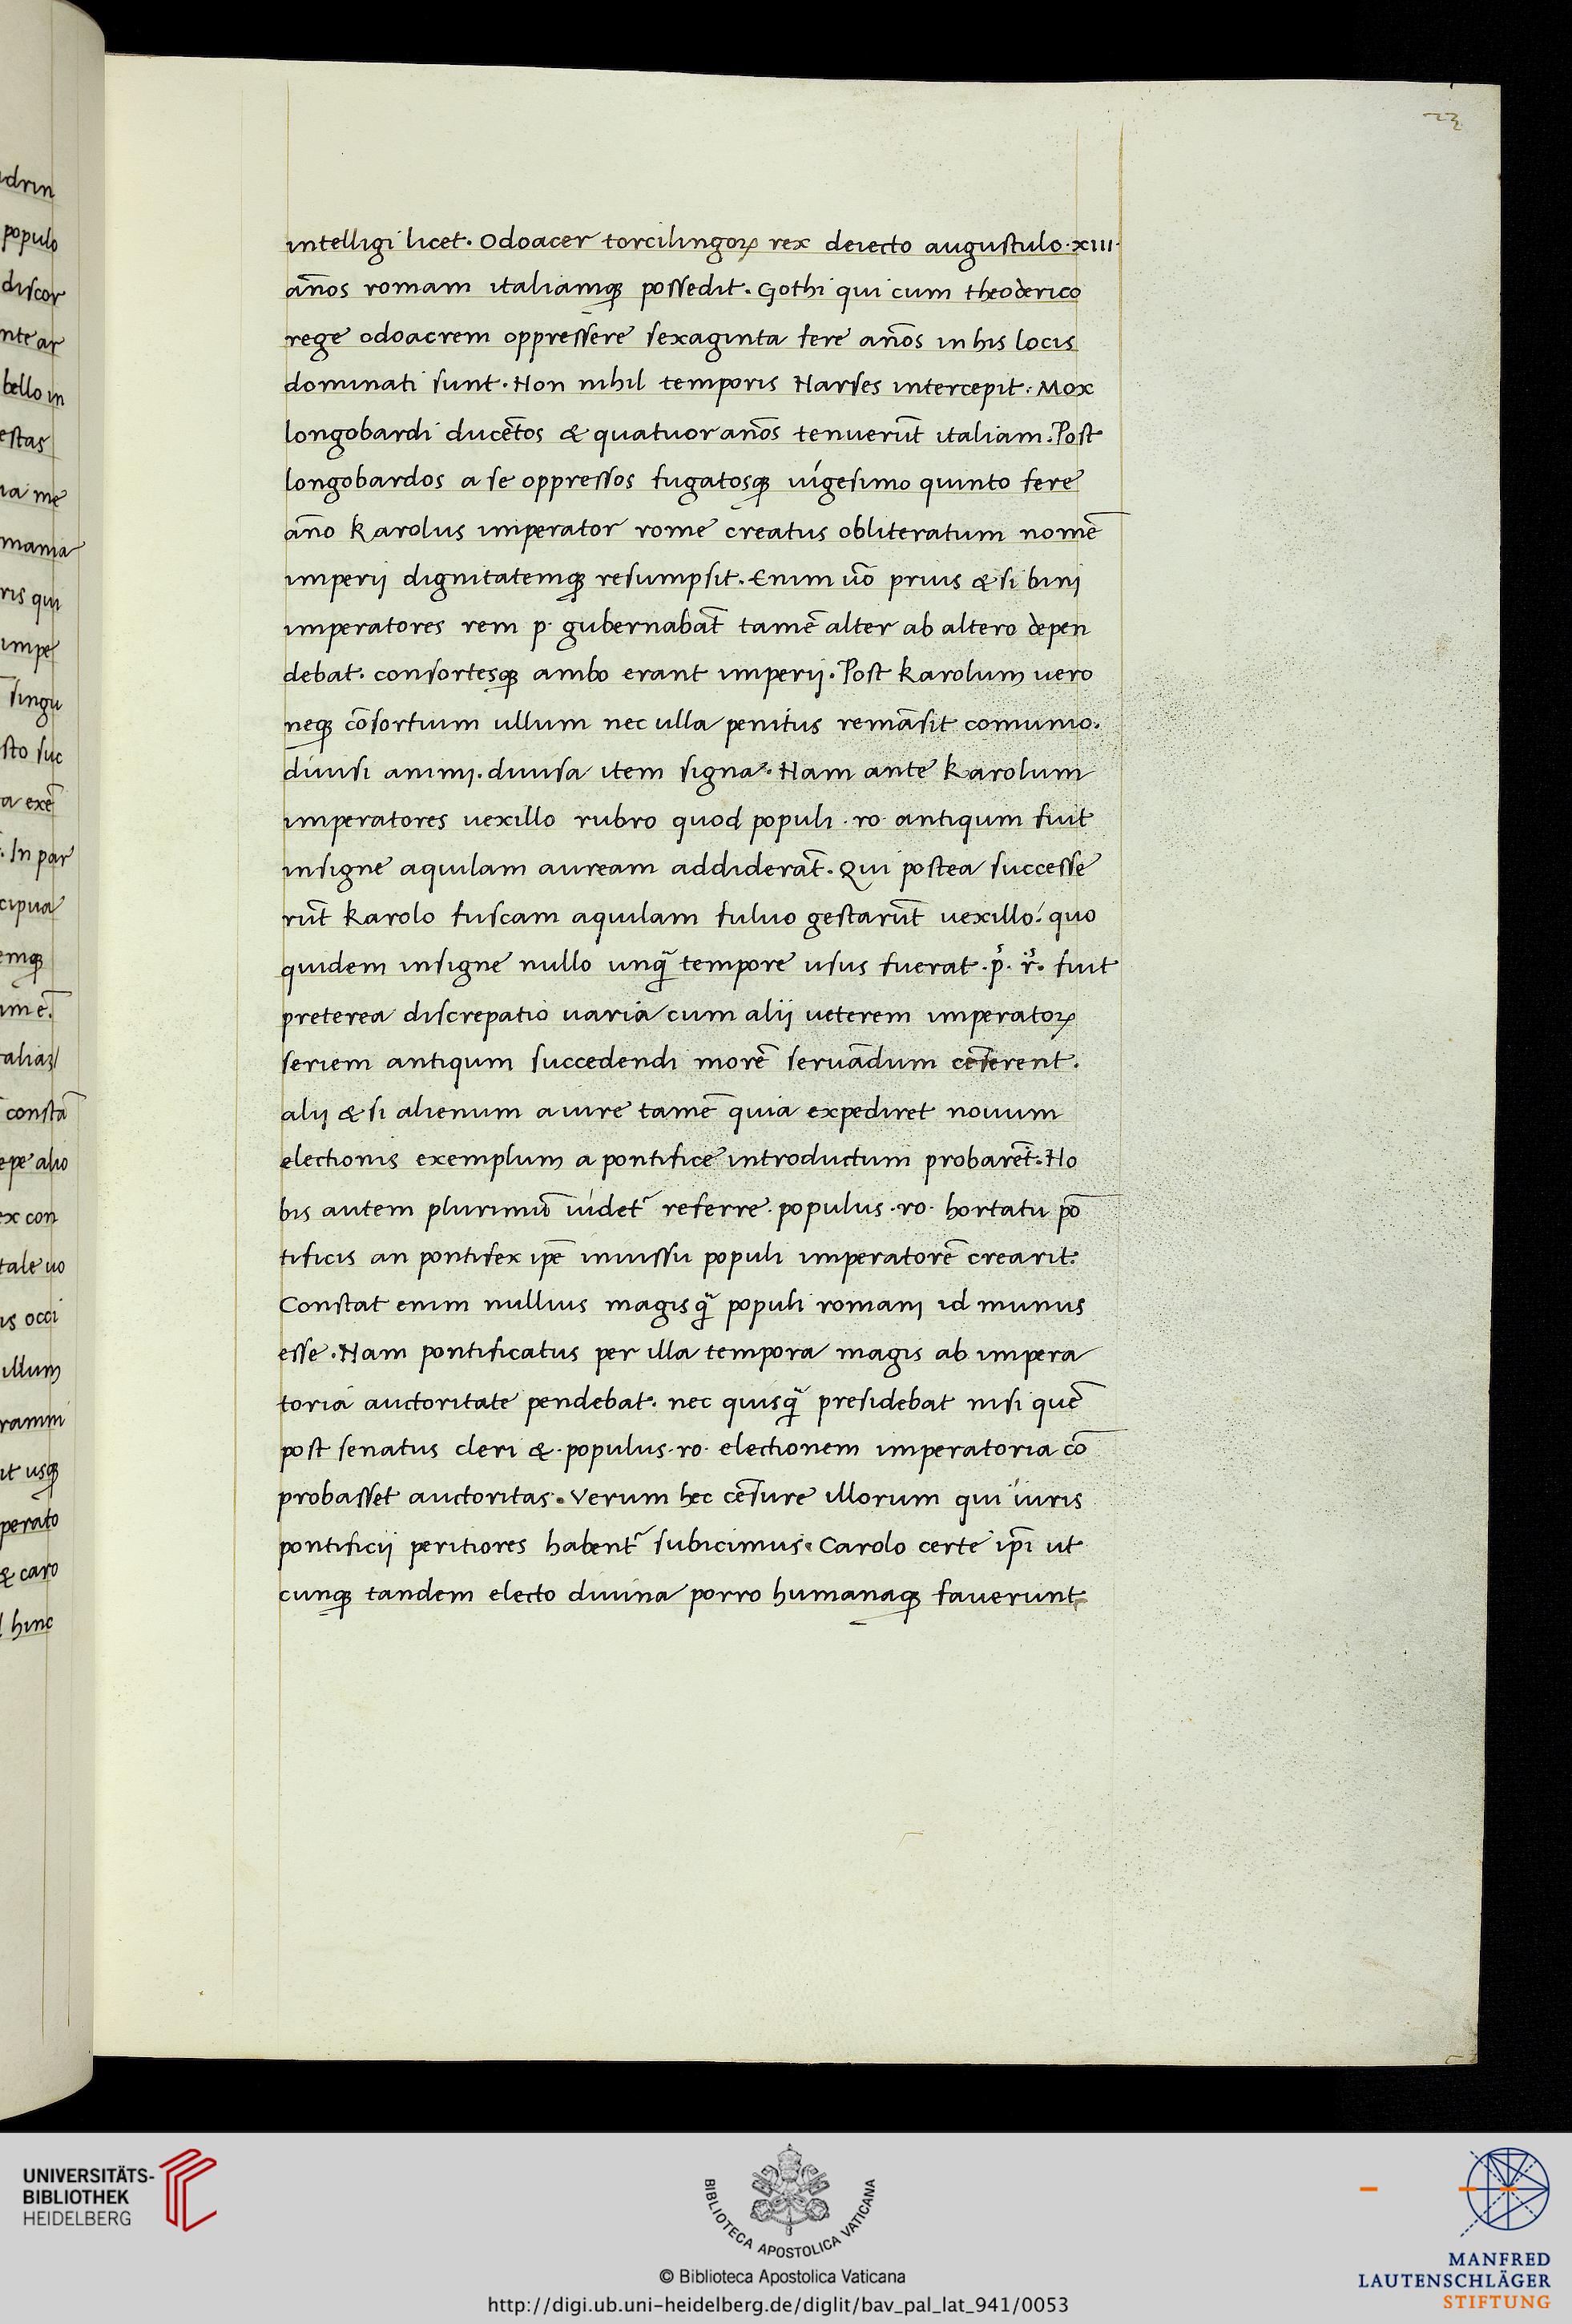 23
intelligi licet. Odoacer torcilingoꝝ rex deiecto augustulo·xiii·
an̄os romam italiamqꝫ possedit. Gothi qui cum theoderico
rege odoacrem oppressere sexaginta fere an̄os in his locis
dominati sunt. Non nihil temporis Narses intercepit. Mox
longobardi ducētos & quatuor an̄os tenuerūt italiam. Post
longobardos a se oppressos fugatosqꝫ uigesimo quinto fere
an̄o Karolus imperator rome creatus obliteratum nomē
imperij dignitatemqꝫ resumpsit. Enim ūo prius & si binj
imperatores rem p. gubernabāt tamē alter ab altero depen
debat. consortesqꝫ ambo erant imperij. Post Karolum uero
neqꝫ cōsortium ullum nec ulla penitus remāsit comunio.
diuisi animj. diuisa item signa. Nam ante Karolum
imperatores uexillo rubro quod populi ·ro· antiqum fuit
insigne aquilam auream addiderāt. Qui postea successe
rūt Karolo fuscam aquilam fuluo gestarūt uexillo: quo
quidem insigne nullo unq̄ tempore usus fuerat .p̄. r̄. fuit
preterea discrepatio uaria cum alij ueterem imperatoꝝ
seriem antiqum succedendi morē seruādum cēserent.
alij & si alienum a iure tamē quia expediret nouum
electionis exemplum a pontifice introductum probarēt. No
bis autem plurimū uidet᷑ referre. populus ·ro· hortatu pō
tificis an pontifex ip̄e iniussu populi imperatorē crearit.
Constat enim nullius magis q̄ populi romanj id munus
esse. Nam pontificatus per illa tempora magis ab impera
toria auctoritate pendebat. nec quisq̄ presidebat nisi quē
post senatus cleri &·populus·ro· electionem imperatoria cō
probasset auctoritas. Verum hec cēsure illorum qui iuris
pontificij peritiores habent᷑ subicimus. Carolo certe ip̄i ut
cunqꝫ tandem electo diuina porro humanaqꝫ fauerunt
drin
populo
discor
nte ar
bello in
estas
ia me
mania
ris qui
impe
singu
sto suc
a exē
. In par
cipua
emqꝫ
imē.
constā
epe alio
ex con
tale uo
is occi
illum
it usqꝫ
perato
& caro
hinc
UNIVERSITÄTS-
BIBLIOTHEK
HEIDELBERG
BIBLIOTECA APOSTOLICA VATICANA
© Biblioteca Apostolica Vaticana
http://digi.ub.uni-heidelberg.de/diglit/bav_pal_lat_941/0053
MANFRED
LAUTENSCHLÄGER
STIFTUNG